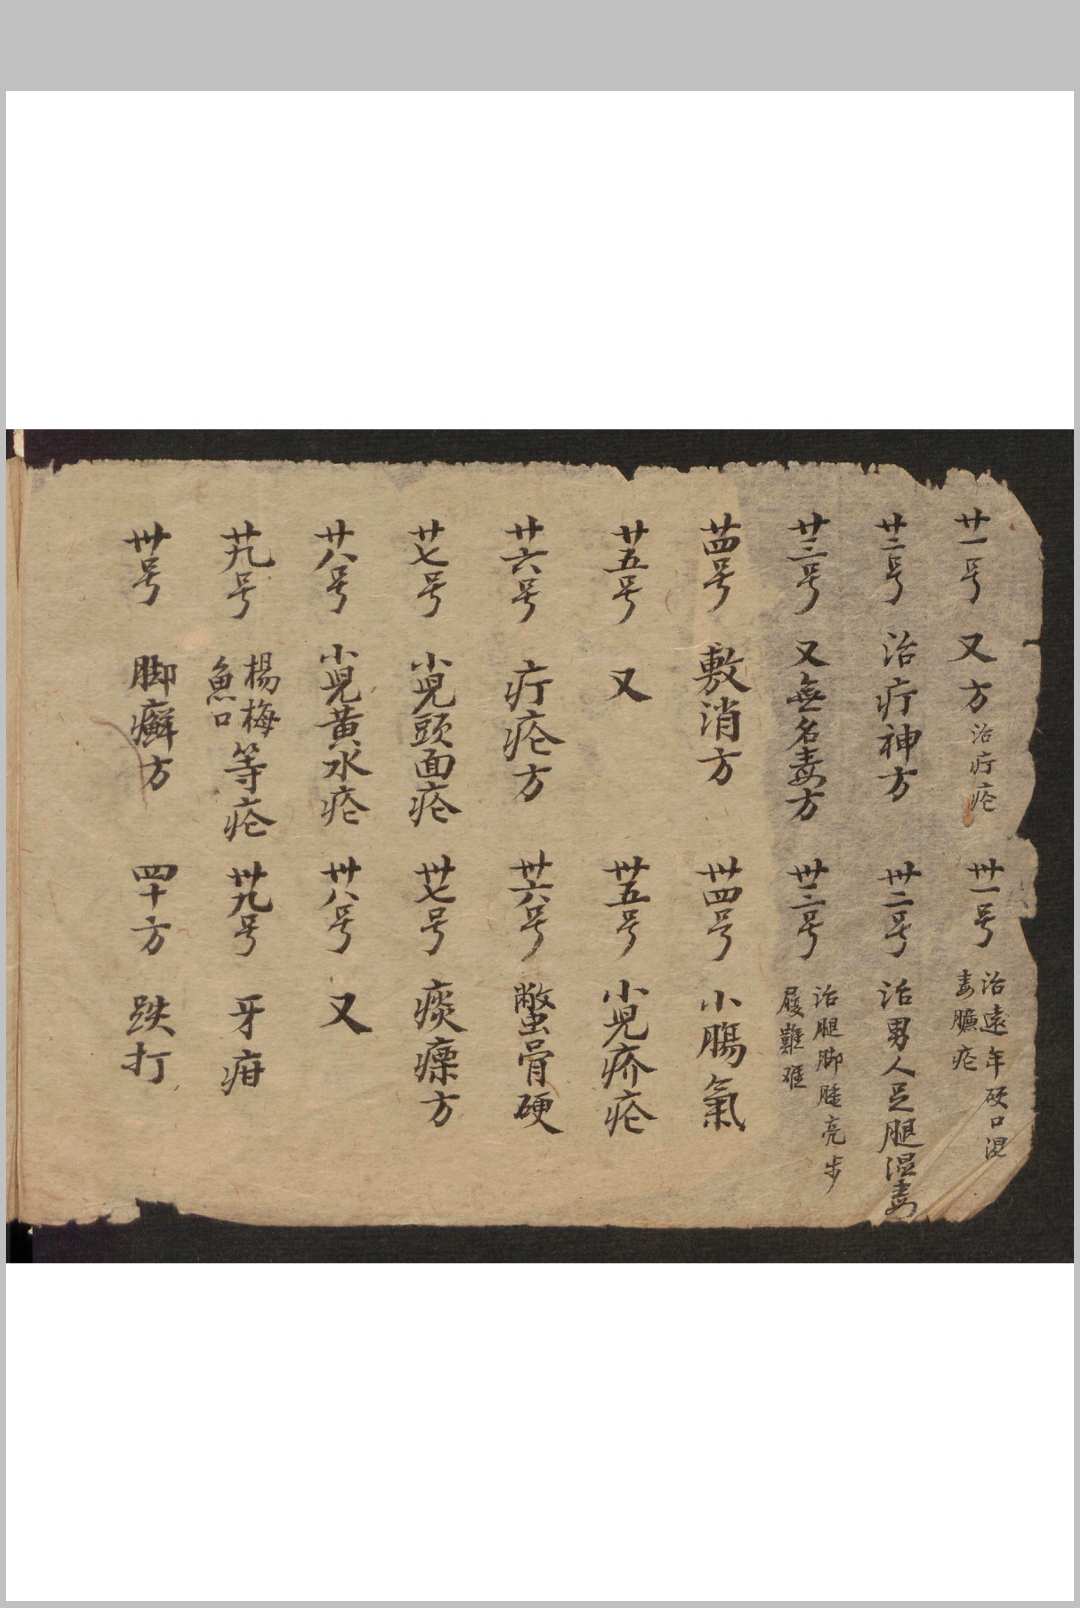 廿一号 又方 治疔疮
廿二号 治疔神方
廿三号 又無名毒方
廿四号 敷消方
廿五号 又
廿六号 疔疮方
廿七号 小兒頭面疮
廿八号 小兒黄水疮
廿九号 楊梅魚口等疮
卅号 脚癬方
卅一号 治遠年硬口混毒臁疮
卅二号 治男人足腿湿毒
卅三号 治腿脚腫亮步履難
卅四号 小腸氣
卅五号 小兒疥疮
卅六号 鱉骨硬
卅七号 痰瘰方
卅八号 又
卅九号 牙疳
四十方 跌打